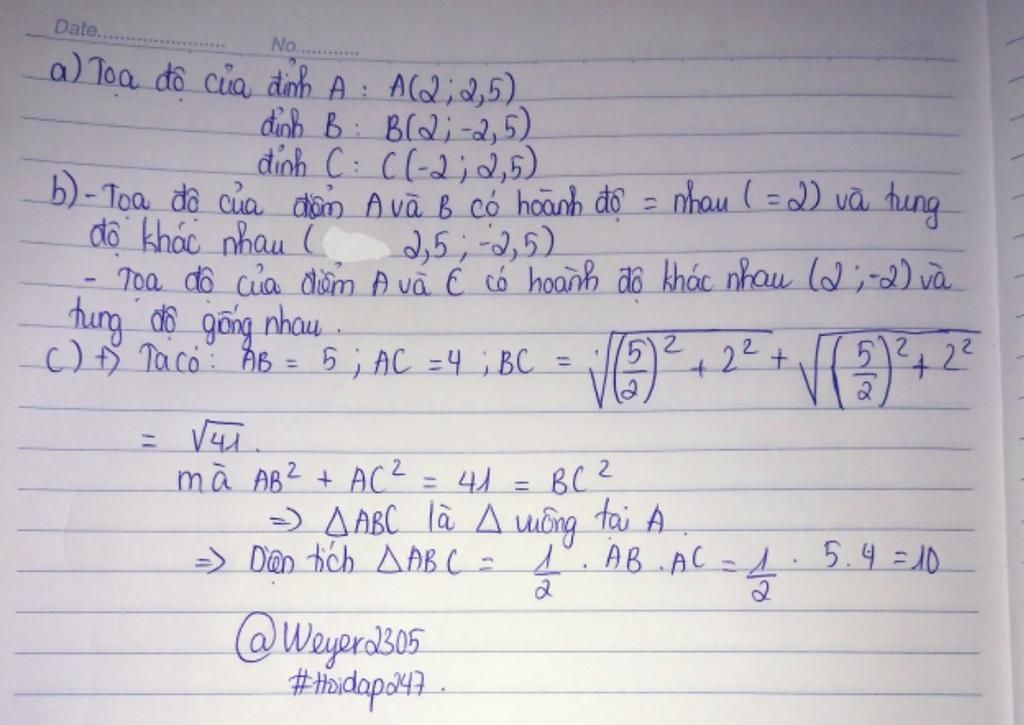 Date........................ No............
a) Toạ độ của đỉnh A : A(2 ; 2,5)
đỉnh B : B(2 ; -2,5)
đỉnh C : C(-2 ; 2,5)
b) - Toạ độ của điểm A và B có hoành độ = nhau ( = 2) và tung
độ khác nhau ( 2,5 ; -2,5)
- Toạ độ của điểm A và C có hoành độ khác nhau (2 ; -2) và
tung độ giống nhau .
c) +) Ta có : AB = 5 ; AC = 4 ; BC = √((5/2)² + 2²) + √((5/2)² + 2²)
= √41 .
mà AB² + AC² = 41 = BC²
=> △ABC là △ vuông tại A
=> Diện tích △ABC = 1/2 . AB . AC = 1/2 . 5 . 4 = 10
@Weyer2305
#Hoidap247 .